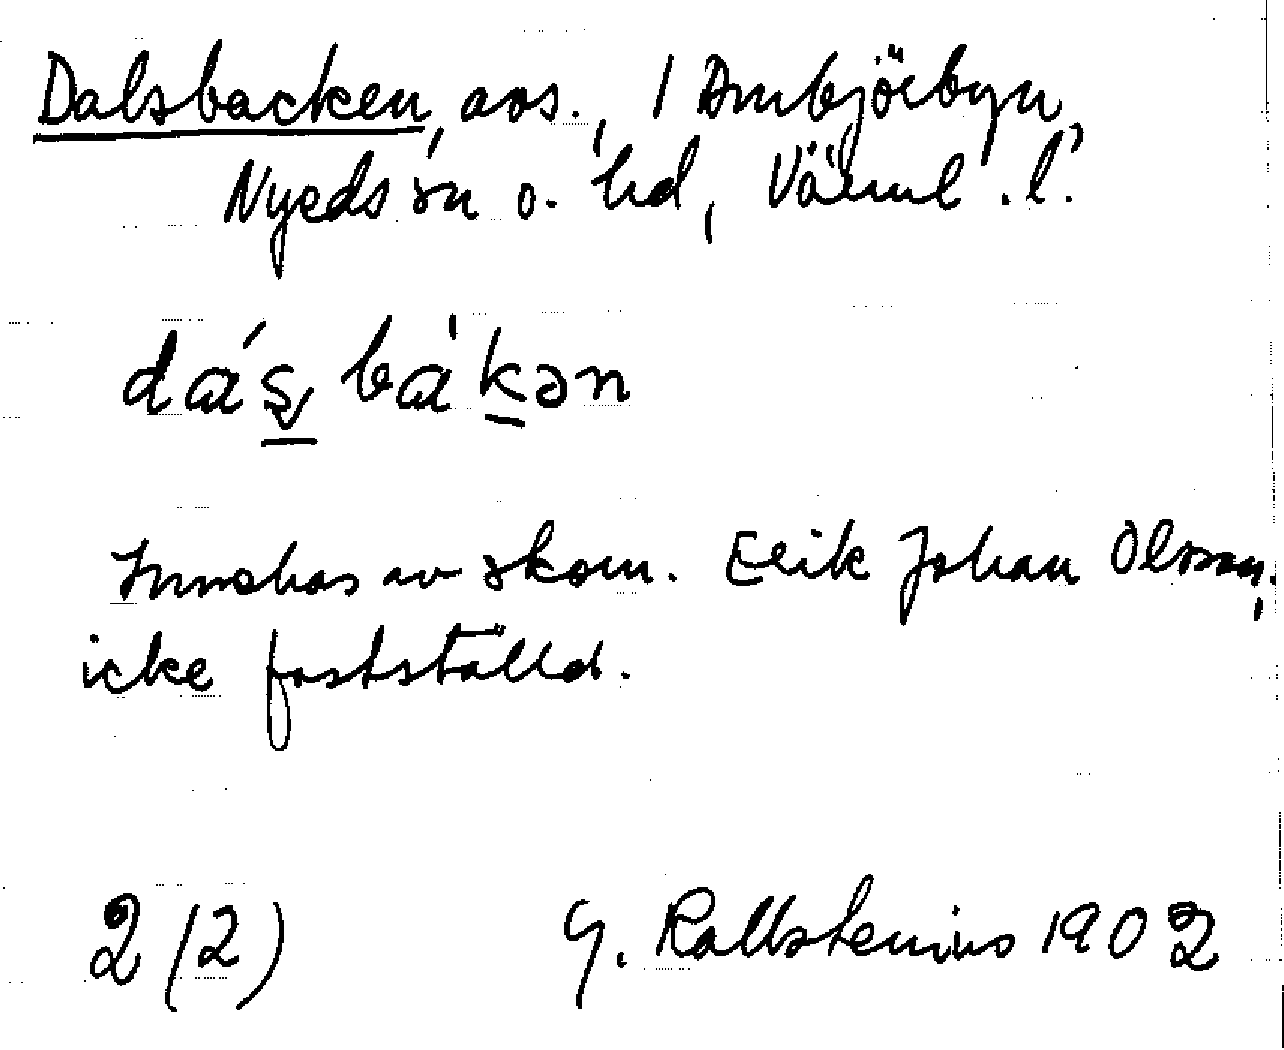 Dalsbacken, avs., 1 Ambjörbyn,
Nyeds sn o. hd, Värml. l.
dás̱ bàḵən
Innehas av skom. Erik Johan Olsson,
icke fastställd.
2 (2) G. Kallstenius 1902